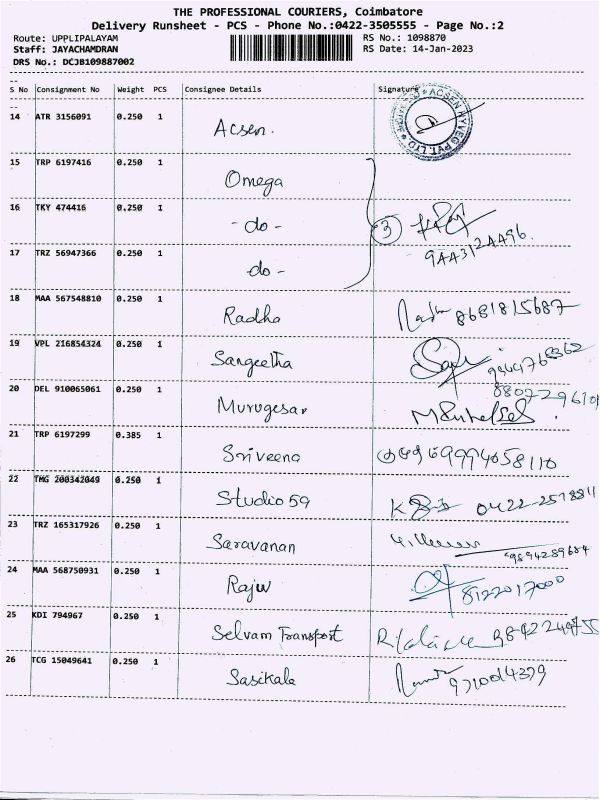 THE PROFESSIONAL COURIERS, Coimbatore
Delivery Runsheet - PCS - Phone No.:0422-3505555 - Page No.:2
Route: UPPLIPALAYAM
RS No.: 1098870
Staff: JAYACHAMDRAN
RS Date: 14-Jan-2023
DRS No.: DCJB109887002
S No Consignment No Weight PCS Consignee Details Signature
14 ATR 3156091 0.250 1 Acsen.
ACSEN HYVEG PVT. LTD.
15 TRP 6197416 0.250 1 Omega
16 TKY 474416 0.250 1 - do - 3
9443124496.
17 TRZ 56947366 0.250 1 do -
18 MAA 567548810 0.250 1 Radha 8681815687
19 VPL 216854324 0.250 1 Sangeetha
20 DEL 910065061 0.250 1 Murugesan
21 TRP 6197299 0.385 1 Sriveena
22 TMG 200342049 0.250 1 Studio 59
23 TRZ 165317926 0.250 1 Saravanan 9894289684
24 MAA 568750931 0.250 1 Raju 8122017000
25 KDI 794967 0.250 1 Selvam Transport
26 TCG 15049641 0.250 1 Sasikala